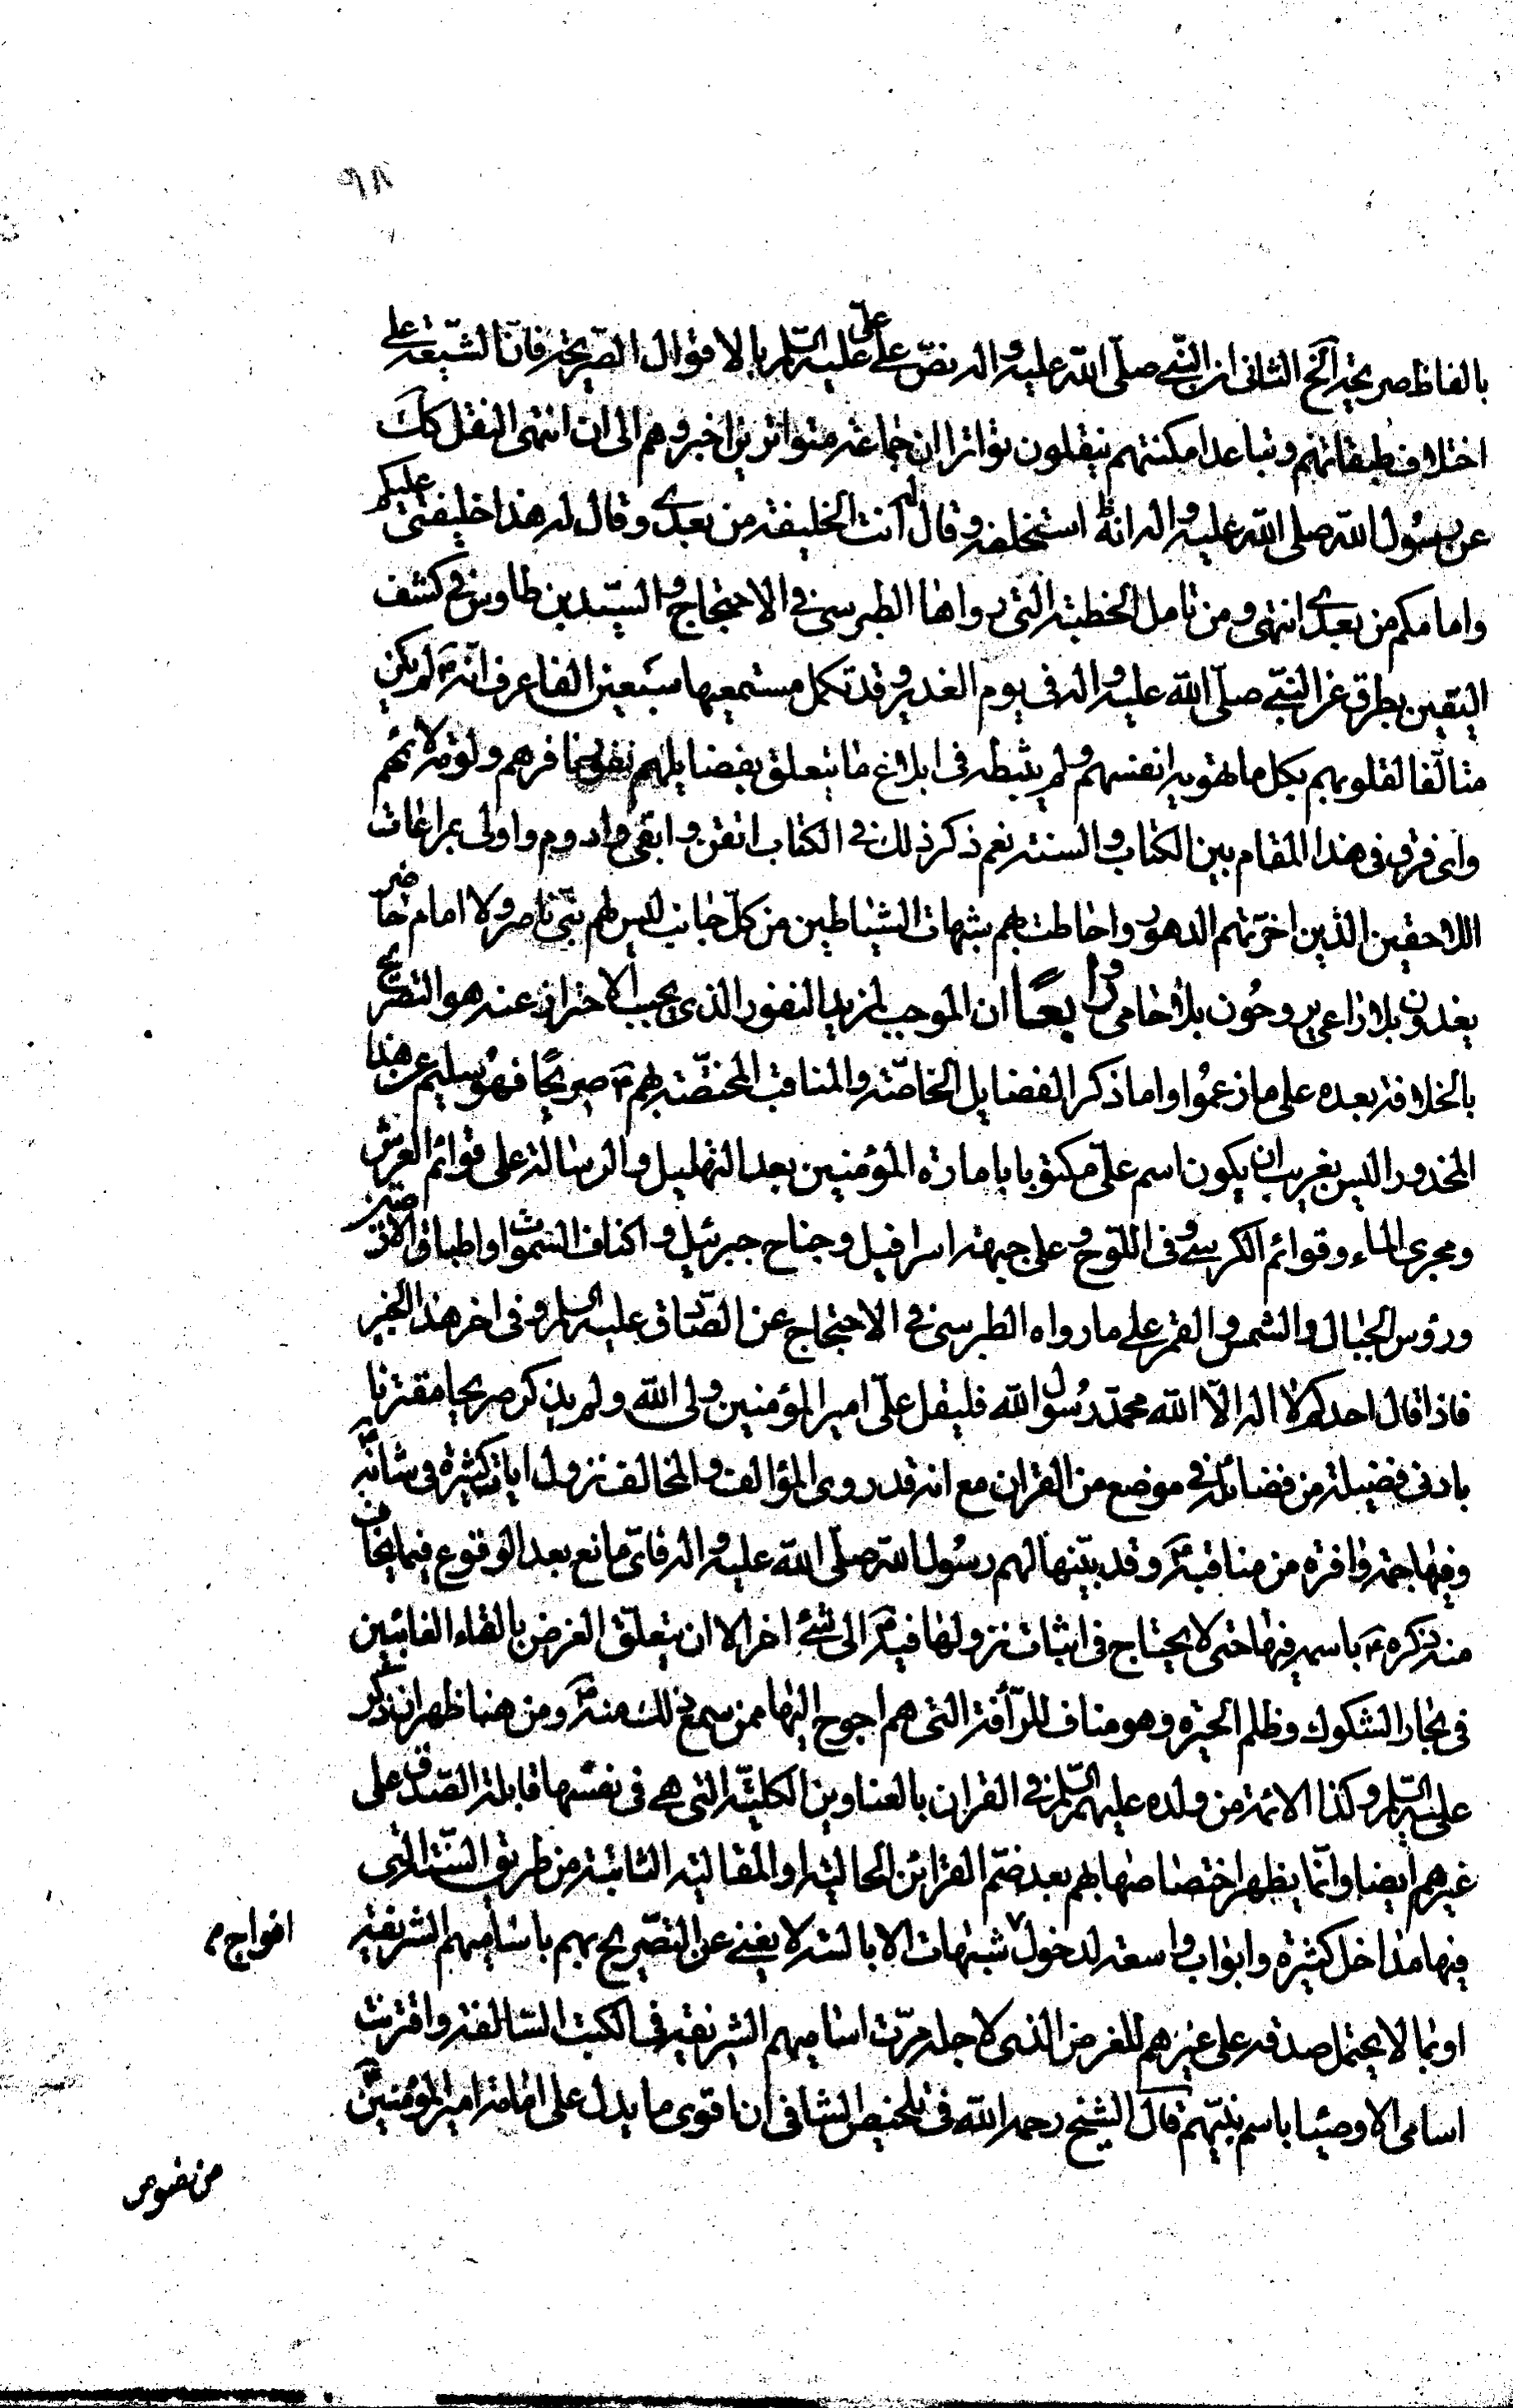 ٩٨
بالفاظ صريحة الخ الثاني ان النبي صلى الله عليه واله نص على علي عليه السلم بالاقوال الصريحة فان الشيعة على
اختلاف طبقاتهم وتباعد امكنتهم ينقلون تواترا ان جماعة متواترين اخبروهم الى ان انتهى النقل كك
عن رسول الله صلى الله عليه واله انه استخلفه وقال له انت الخليفة من بعدي وقال له هذا خليفتي عليكم
وامامكم من بعدي انتهى ومن تامل الخطبة التي رواها الطبرسي في الاحتجاج والسيد بن طاوس في كشف
اليقين بطرق عن النبي صلى الله عليه واله في يوم الغدير وقد تكمل مستمعيها سبعين الفا عرف انه ص لم يكن
متالفا لقلوبهم بكل ما تهويه انفسهم ولم يثبطه في ابلاغ ما يتعلق بفضايلهم نفور منافرهم ولومة لائمهم
واي فرق في هذا المقام بين الكتاب والسنة نعم ذكر ذلك في الكتاب اتقن وابقى وادوم واولى بمراعات
اللاحقين الذين اخرتهم الدهور واحاطت بهم شبهات الشياطين من كل جانب ليس لهم نبي ناصر ولا امام حاضر
يغدون بلا راعي ويروحون بلا حامي ورابعًا ان الموجب لمزيد النفور الذي يجب الاحتراز عنه هو التصريح
بالخلافة بعده على ما زعموا واما ذكر الفضايل الخاصة والمناقب المختصة بهم ع صريحًا فهو سليم عن هذا
المحذور اليس بغريب ان يكون اسم علي مكتوبا بامارة المؤمنين بعد التهليل والرسالة على قوائم العرش
ومجرى الماء وقوائم الكرسي وفي اللوح وعلى جبهة اسرافيل وجناح جبرئيل واكناف السموات واطباق الارضين
ورؤس الجبال والشمس والقمر على ما رواه الطبرسي في الاحتجاج عن الصادق عليه السلم وفي اخر هذا الخبر
فاذا قال احدكم لا اله الا الله محمد رسول الله فليقل علي امير المؤمنين ولي الله ولم يذكر صريحا مقترنا
بادنى فضيلة من فضائله في موضع من القران مع انه قد روى المؤالف والمخالف نزول ايات كثيرة في شانه
وفيها جمة وافرة من مناقبه ع وقد بينها لهم رسول الله صلى الله عليه واله فاي مانع بعد الوقوع فيما يخاف
منه بذكره ع باسمه فيها حتى لا يحتاج في اثبات نزولها فيه ع الى شئ اخر الا ان يتعلق الغرض بالقاء الغائبين
في بحار الشكوك وظلم الحيرة وهو مناف للرأفة التي هم احوج اليها ممن سمع ذلك منه ص ومن هنا ظهر ان ذكر
علي عليه السلم وكذا الائمة من ولده عليهم السلم في القران بالعناوين الكلية التي هي في نفسها قابلة الصدق على
غيرهم ايضا وانما يظهر اختصاصها بهم بعد ضم القرائن الحالية او المقالية الثابتة من طريق السنة التي
فيها مداخل كثيرة وابواب واسعة لدخول شبهات الابالسة لا يغني عن التصريح بهم باساميهم الشريفة
افواج م
او بما لا يحتمل صدقه على غيرهم للغرض الذي لاجله مرت اساميهم الشريفة في الكتب السالفة واقترنت
اسامي الاوصيا باسم نبيهم قال الشيخ رحمه الله في تلخيص الشافي ان اقوى ما يدل على امامة امير المؤمنين ع
من نصوص